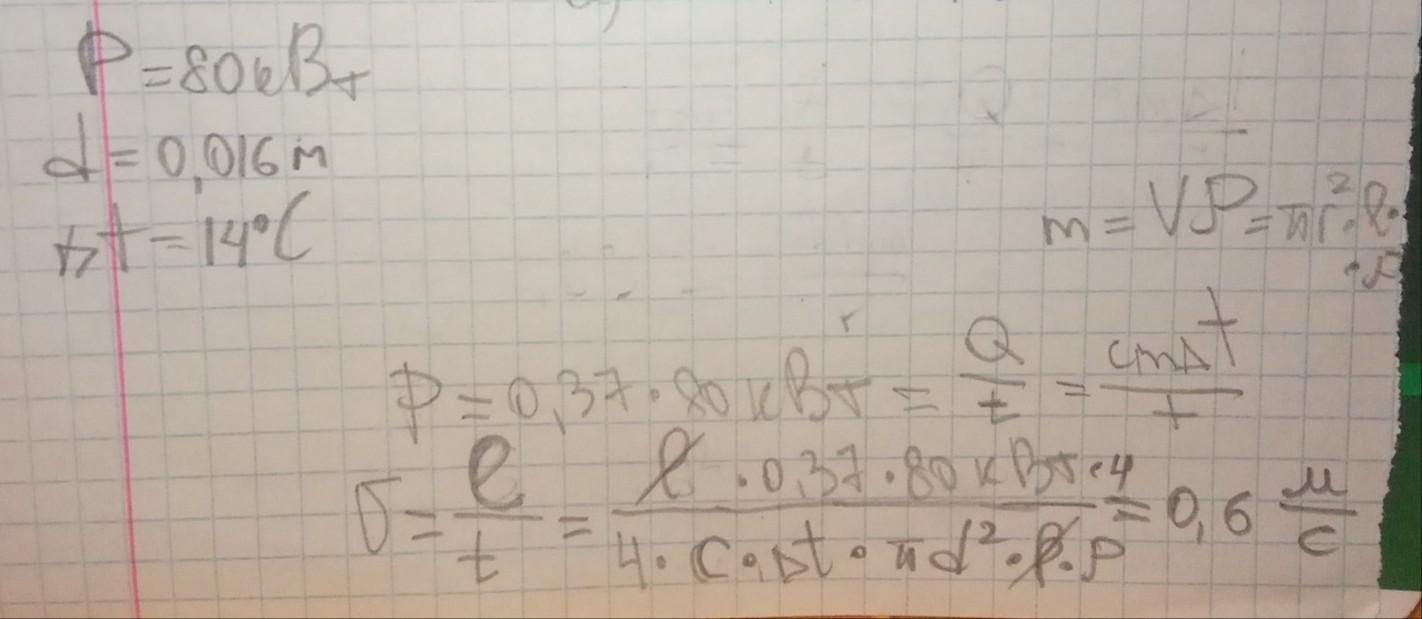 P = 80 кВт
d = 0,016 м
Δt = 14°C
m = Vρ = πr²·l·
·ρ
P = 0,37·80 кВт = Q/t = cmΔt/t
v = l/t = l·0,37·80 кВт·4/4·c·Δt·πd²·l·ρ = 0,6 м/с